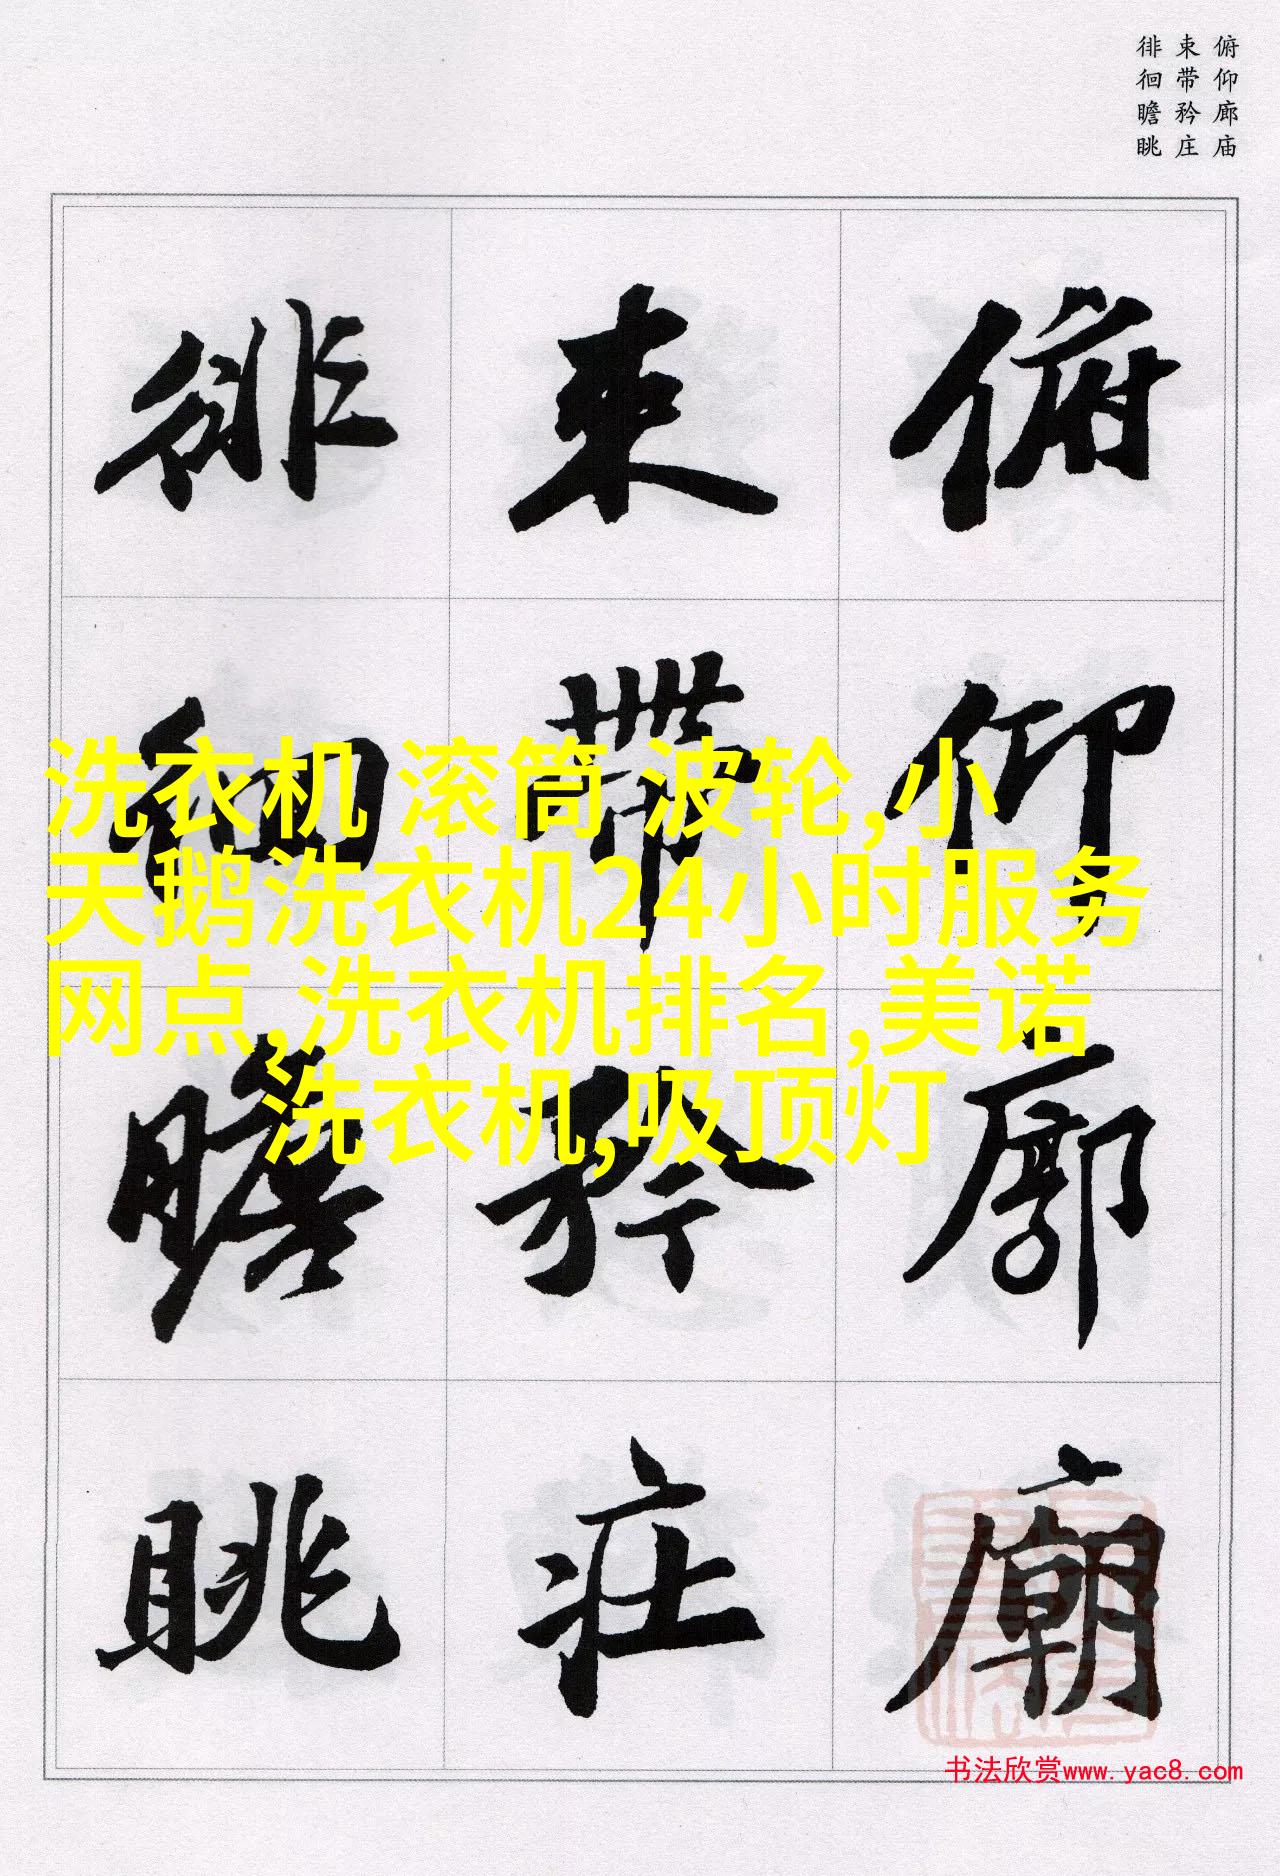 俯仰廊庙
束带矜庄
徘徊瞻眺
俯仰廊廟
束帶矜莊
徘徊瞻眺
洗衣机 滚筒 波轮,小
天鹅洗衣机24小时服务
网点,洗衣机排名,美诺
洗衣机,吸顶灯
书法欣赏www.yac8.com